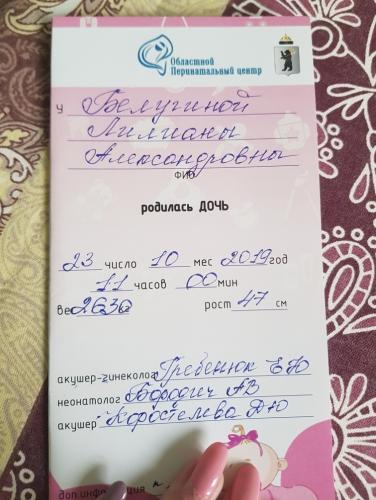 Областной
Перинатальный центр
у Белугиной
Лилианы
Александровны
ФИО
родилась ДОЧЬ
23 число 10 мес 2019 год
11 часов 00 мин
вес 2630 рост 47 см
акушер-гинеколог Гребенюк ЕЮ
неонатолог Бородич АВ
акушер Коростелева ДЮ
доп.информация